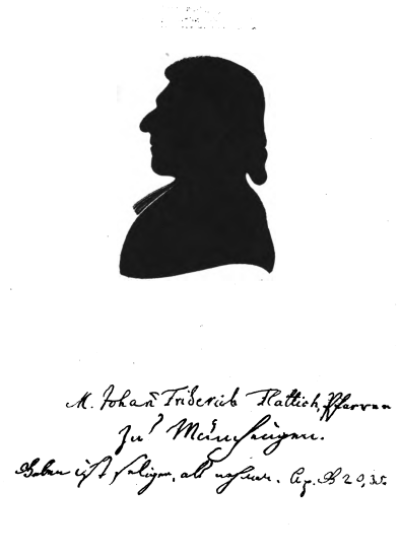 M. Johañ Friderich Flattich, Pfarrer
zu Münchingen.
Geben ist seliger, als nehmen. Ap. G 20, 35.